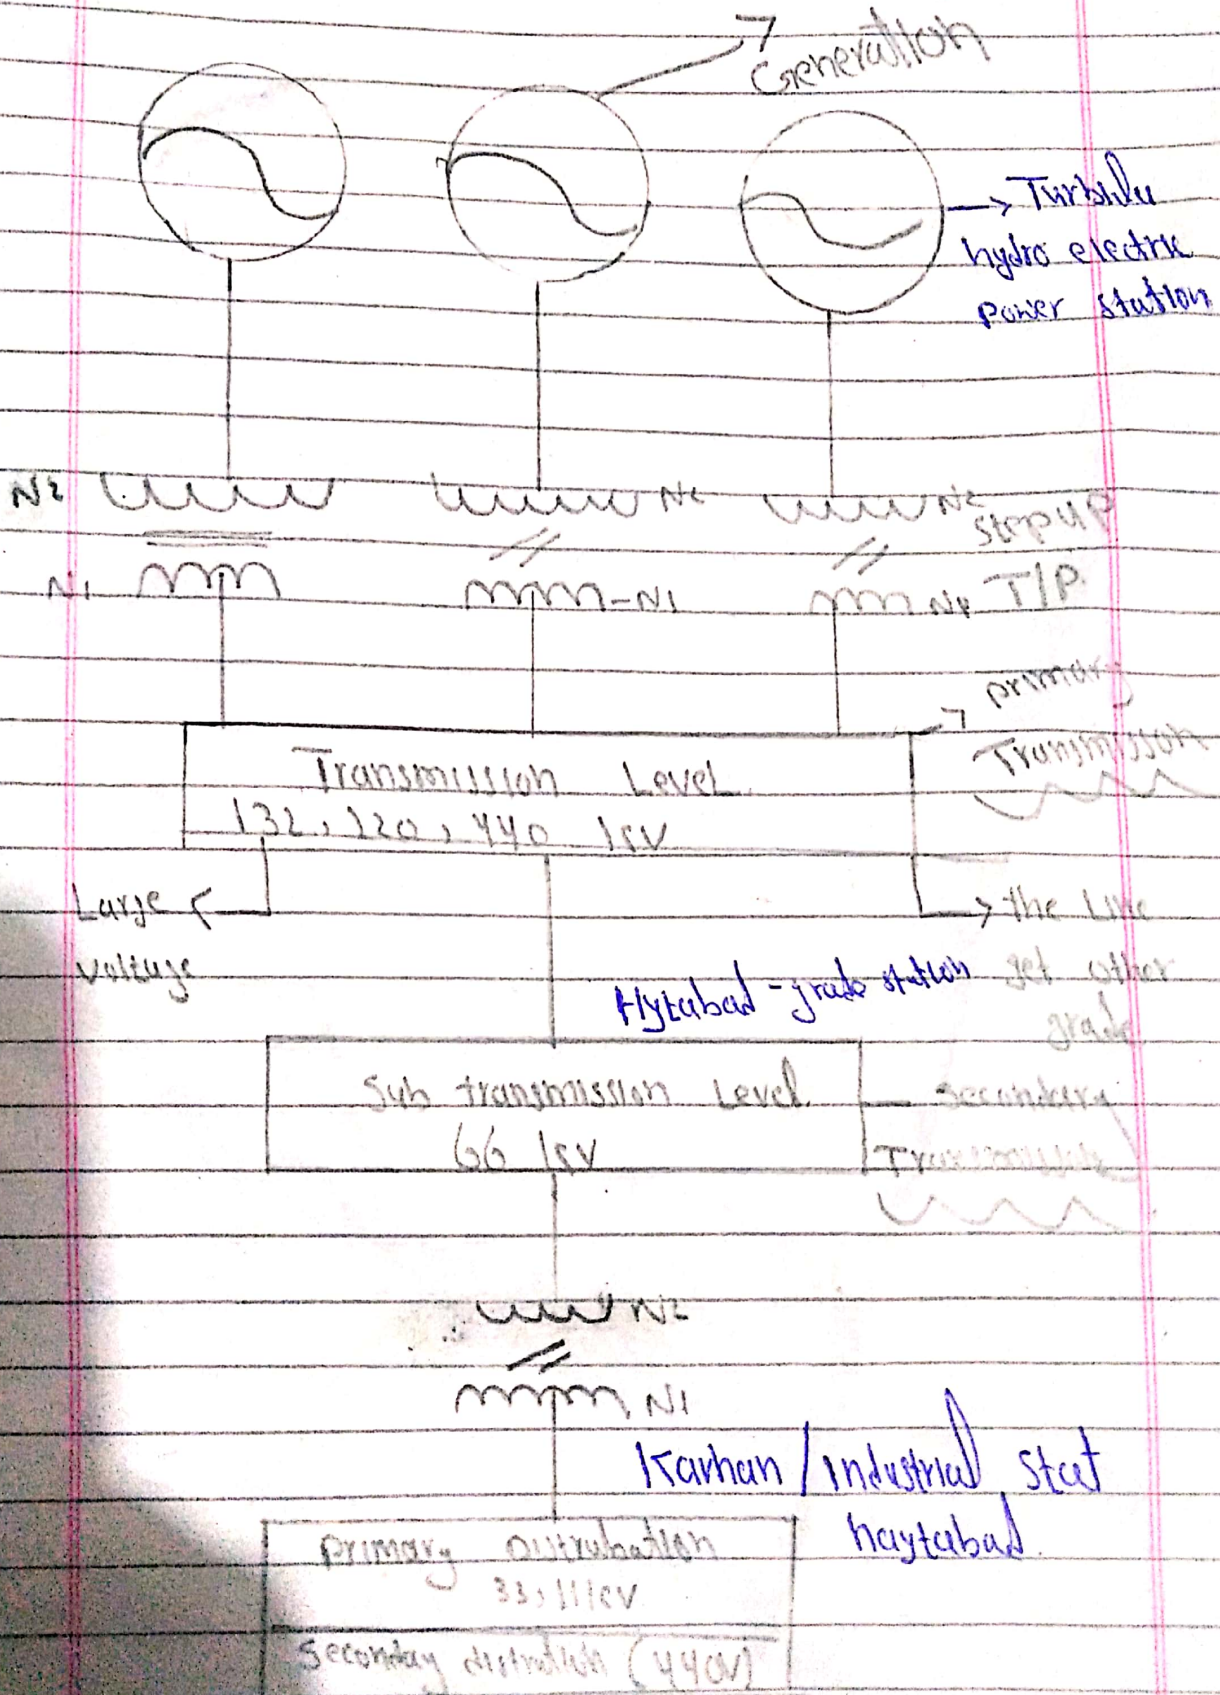 Generation
Turbulu
hydro electric
power station
N2
N2
N2
step up
N1
-N1
N1
T/P.
primary
Transmission
Transmission Level
132, 220, 440 kV
Large
voltage
the Line
get other
grade
Hytabad - grade station
Sub transmission Level
66 kV
secondary
Transmission
N2
N1
Karhan / industrial stat
haytabad.
primary Distrubation
33, 11 kV
Seconday distrution (440V)